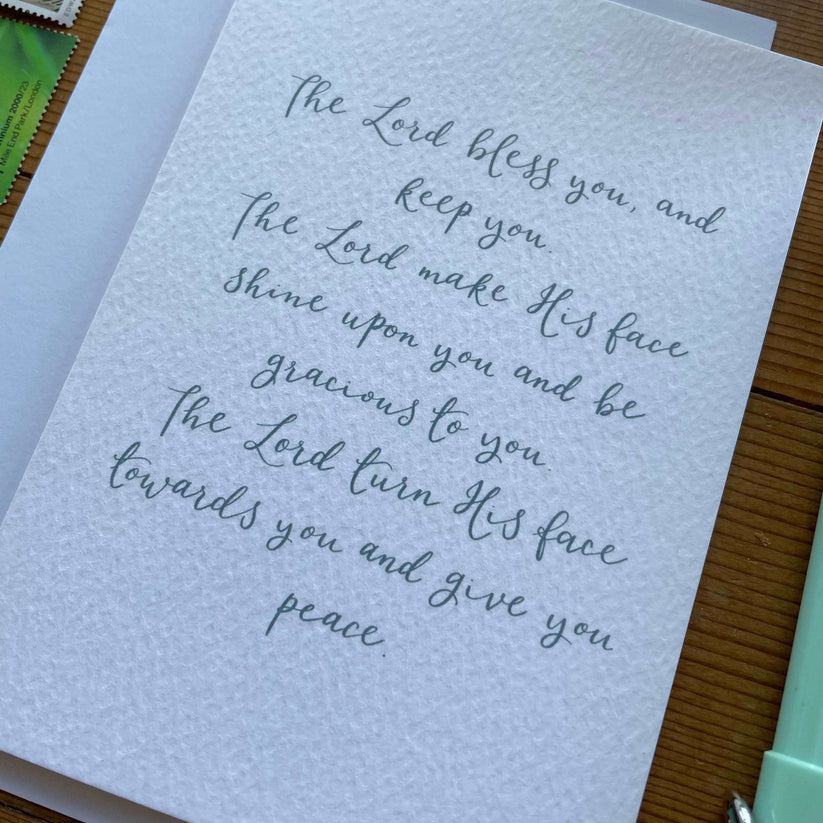 The Lord bless you, and
keep you.
The Lord make His face
shine upon you and be
gracious to you.
The Lord turn His face
towards you and give you
peace.
Mile End Park/London